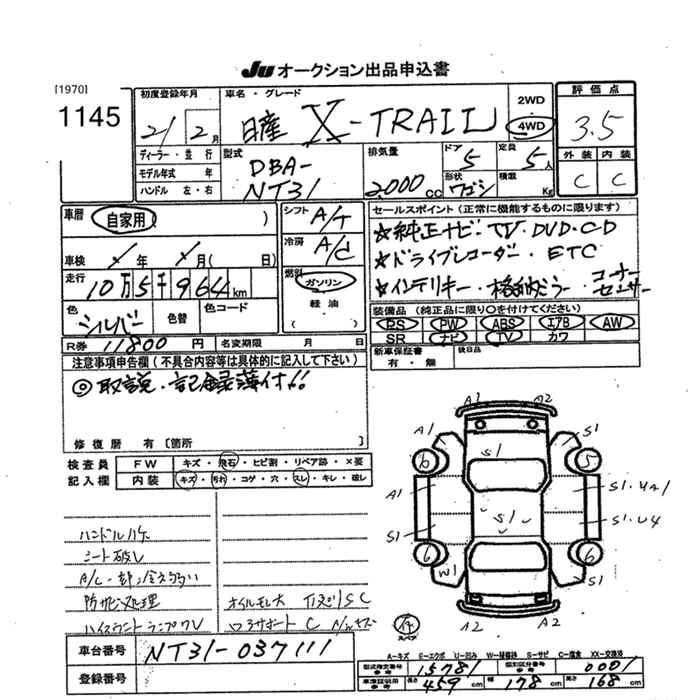 JU オークション出品申込書
[1970]
1145
初度登録年月
21 2月
車名・グレード
日産 X-TRAIL
2WD
4WD
評価点
3.5
ディーラー・並行
モデル年式 年
ハンドル 左・右
型式
DBA-
NT31
排気量
2,000cc
ドア
5
形状
ワゴン
定員
5人
積載
Kg
外装 内装
C C
車歴 自家用 ( )
車検 年 月( 日)
走行
10万5千964km
色
シルバー
色替
色コード
シフト A/T
冷房 A/C
燃料
ガソリン
軽油
( )
セールスポイント(正常に機能するものに限ります)
★純正ナビ・TV・DVD・CD
★ドライブレコーダー・ETC
★インテリキー・格納ミラー・コーナーセンサー
装備品(純正品に限り○を付けてください)
PS PW ABS エアB AW
SR ナビ TV カワ
R券 11800円
名変期限 月 日
新車保証書
有・無
後日品
注意事項申告欄(不具合内容等は具体的に記入して下さい)
◎取説・記録簿付!!
修復歴 有〔箇所 〕
検査員
記入欄
FW キズ・飛石・ヒビ割・リペア跡・X要
内装 キズ・汚れ・コゲ・穴・スレ・キレ・破レ
ハンドルハゲ
シート破レ
防サビ処理
オイルモレ大
ロアサポート C
車台番号 NT31-037111
登録番号
A1 A2
A1 S1
6 S1 5
A1 S1・UA1
S1 S1 S1・U4
6 6
W1 S1
A2 A2
スペア
A-キズ E-エクボ U-凹み W-補修跡 S-サビ C-腐食 XX-交換済
型式指定番号 15781
類別区分番号 0001
長さ 459cm 幅 178cm 高さ 168cm